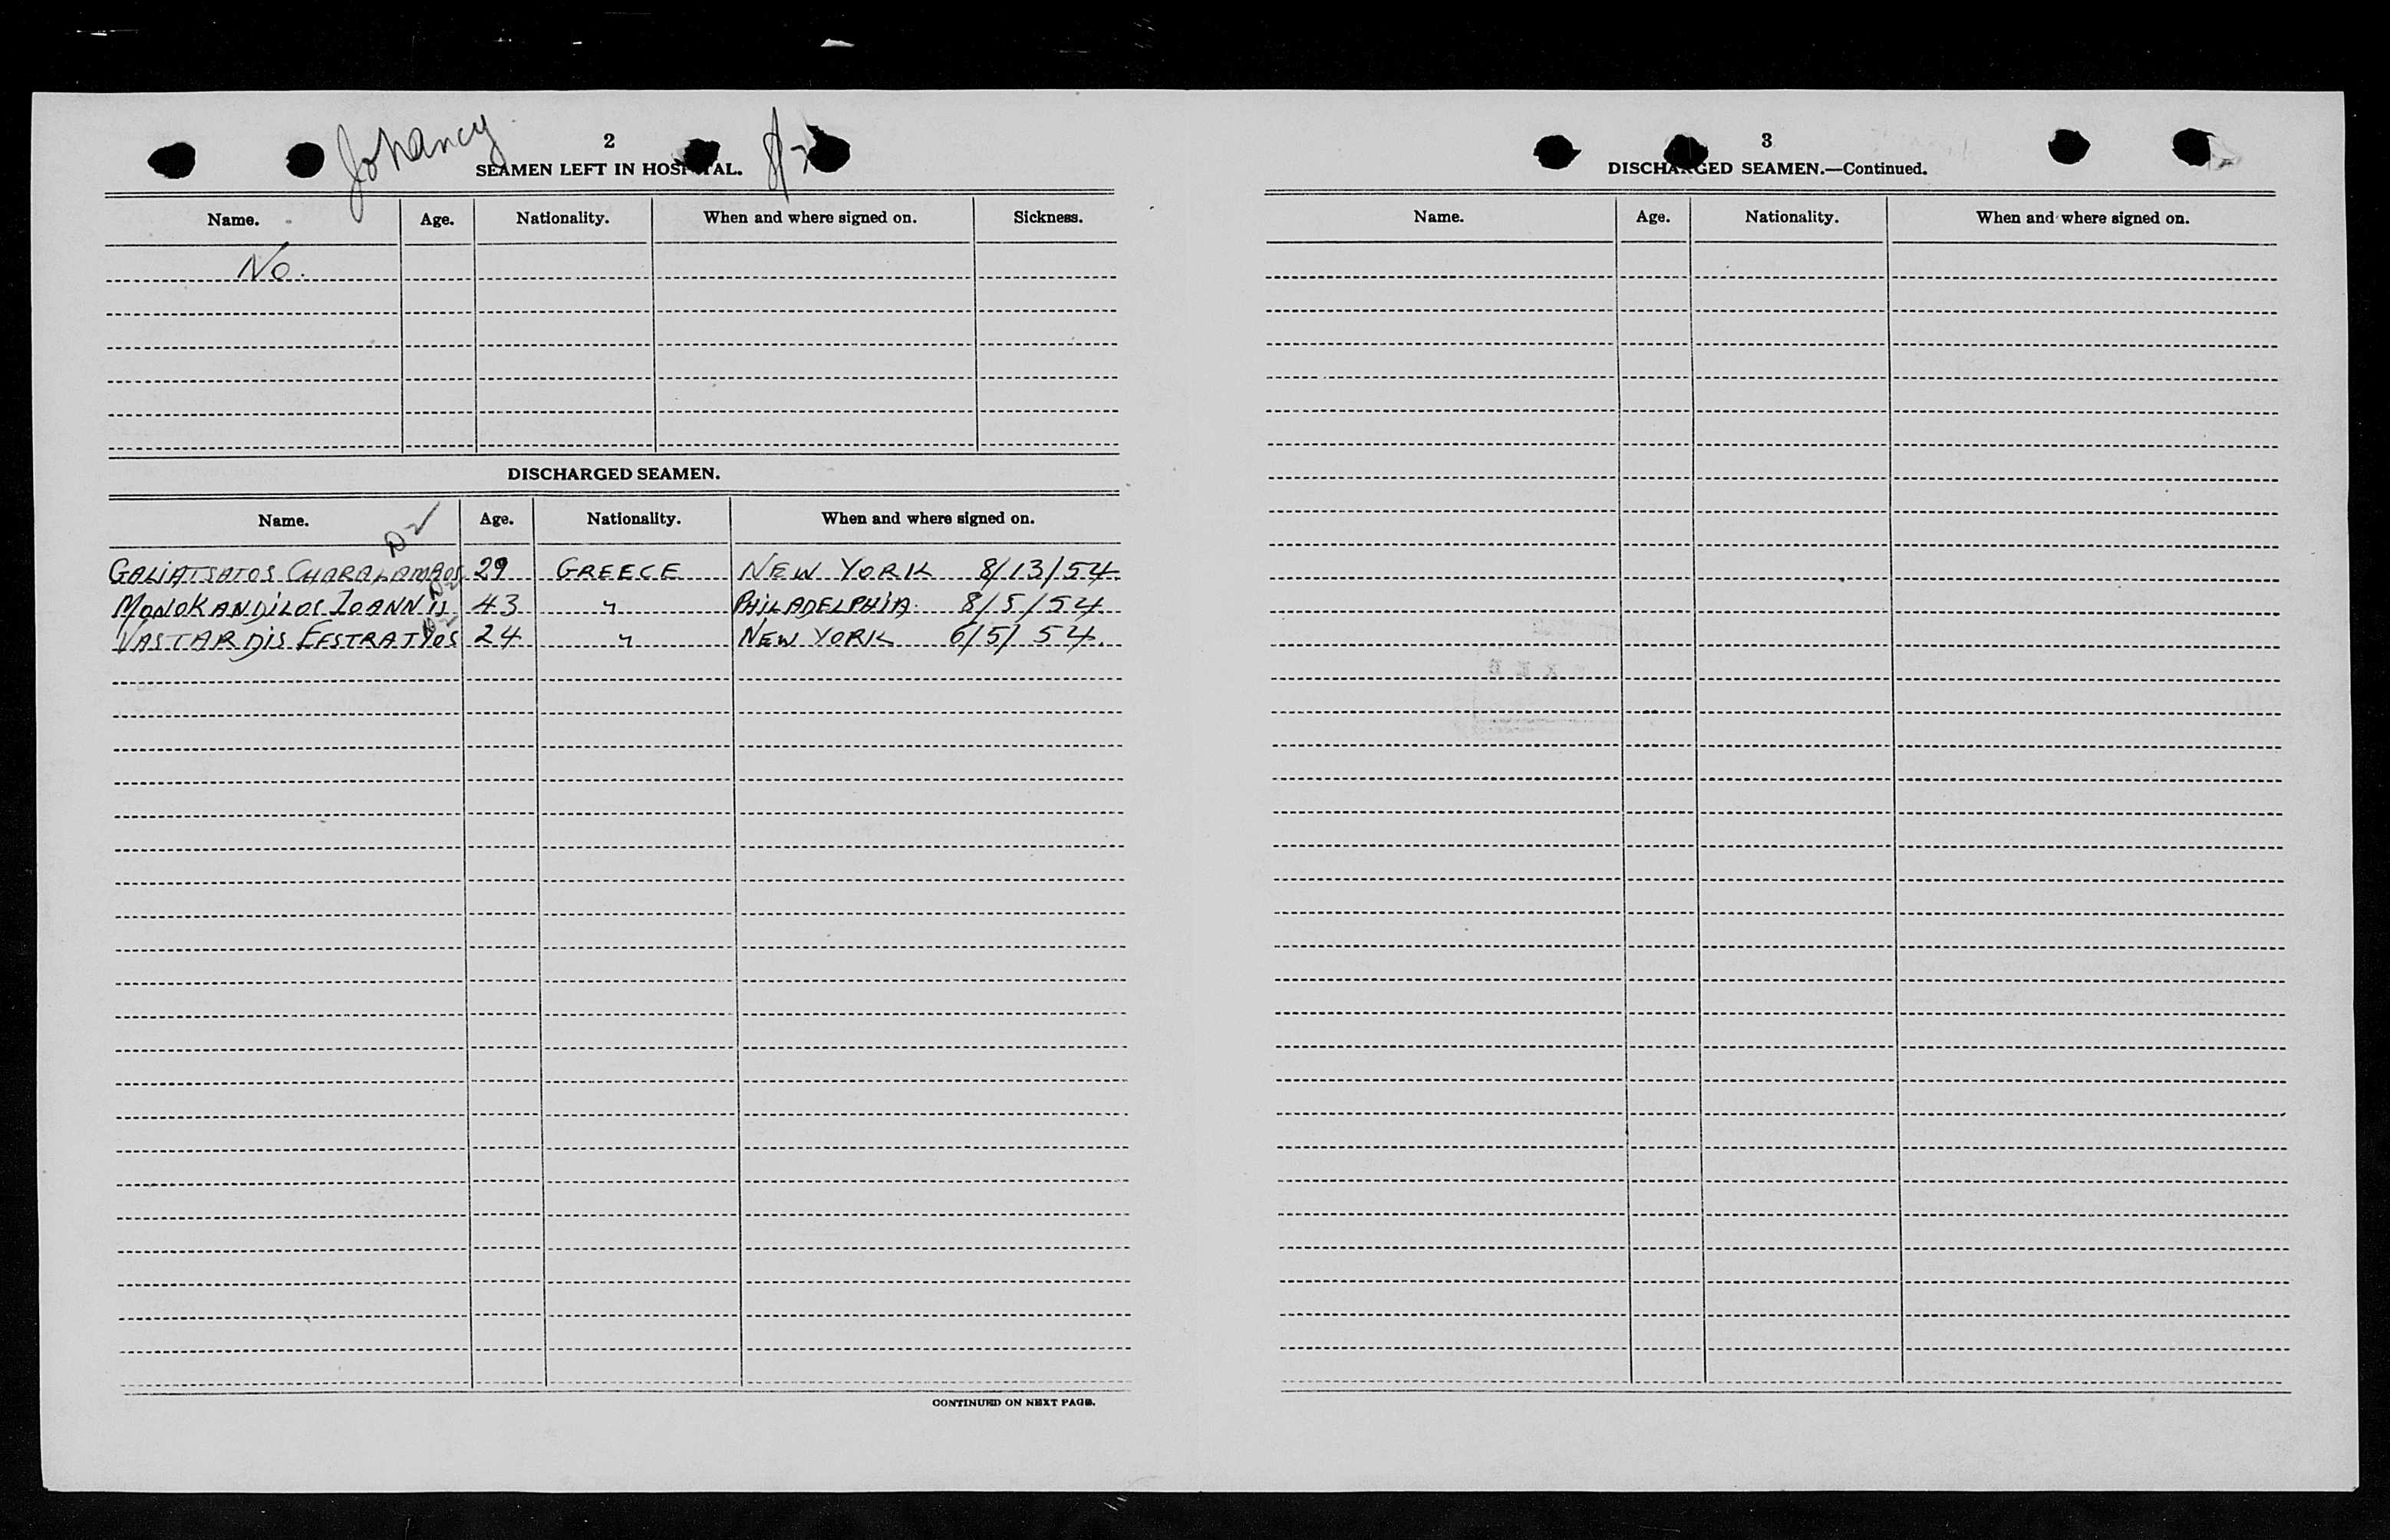 Johancy 8/2
2
SEAMEN LEFT IN HOSPITAL.
Name. Age. Nationality. When and where signed on. Sickness.
No.
DISCHARGED SEAMEN.
Name. Age. Nationality. When and where signed on.
D2
GALIATSATOS CHARALAMBOS 29 GREECE NEW YORK 8/13/54
D2
MONOKANDILOS IOANNIS 43 " PHILADELPHIA 8/5/54
D2
VASTARDIS EFSTRATIOS 24 " NEW YORK 6/5/54.
CONTINUED ON NEXT PAGE.
3
DISCHARGED SEAMEN.—Continued.
Name. Age. Nationality. When and where signed on.